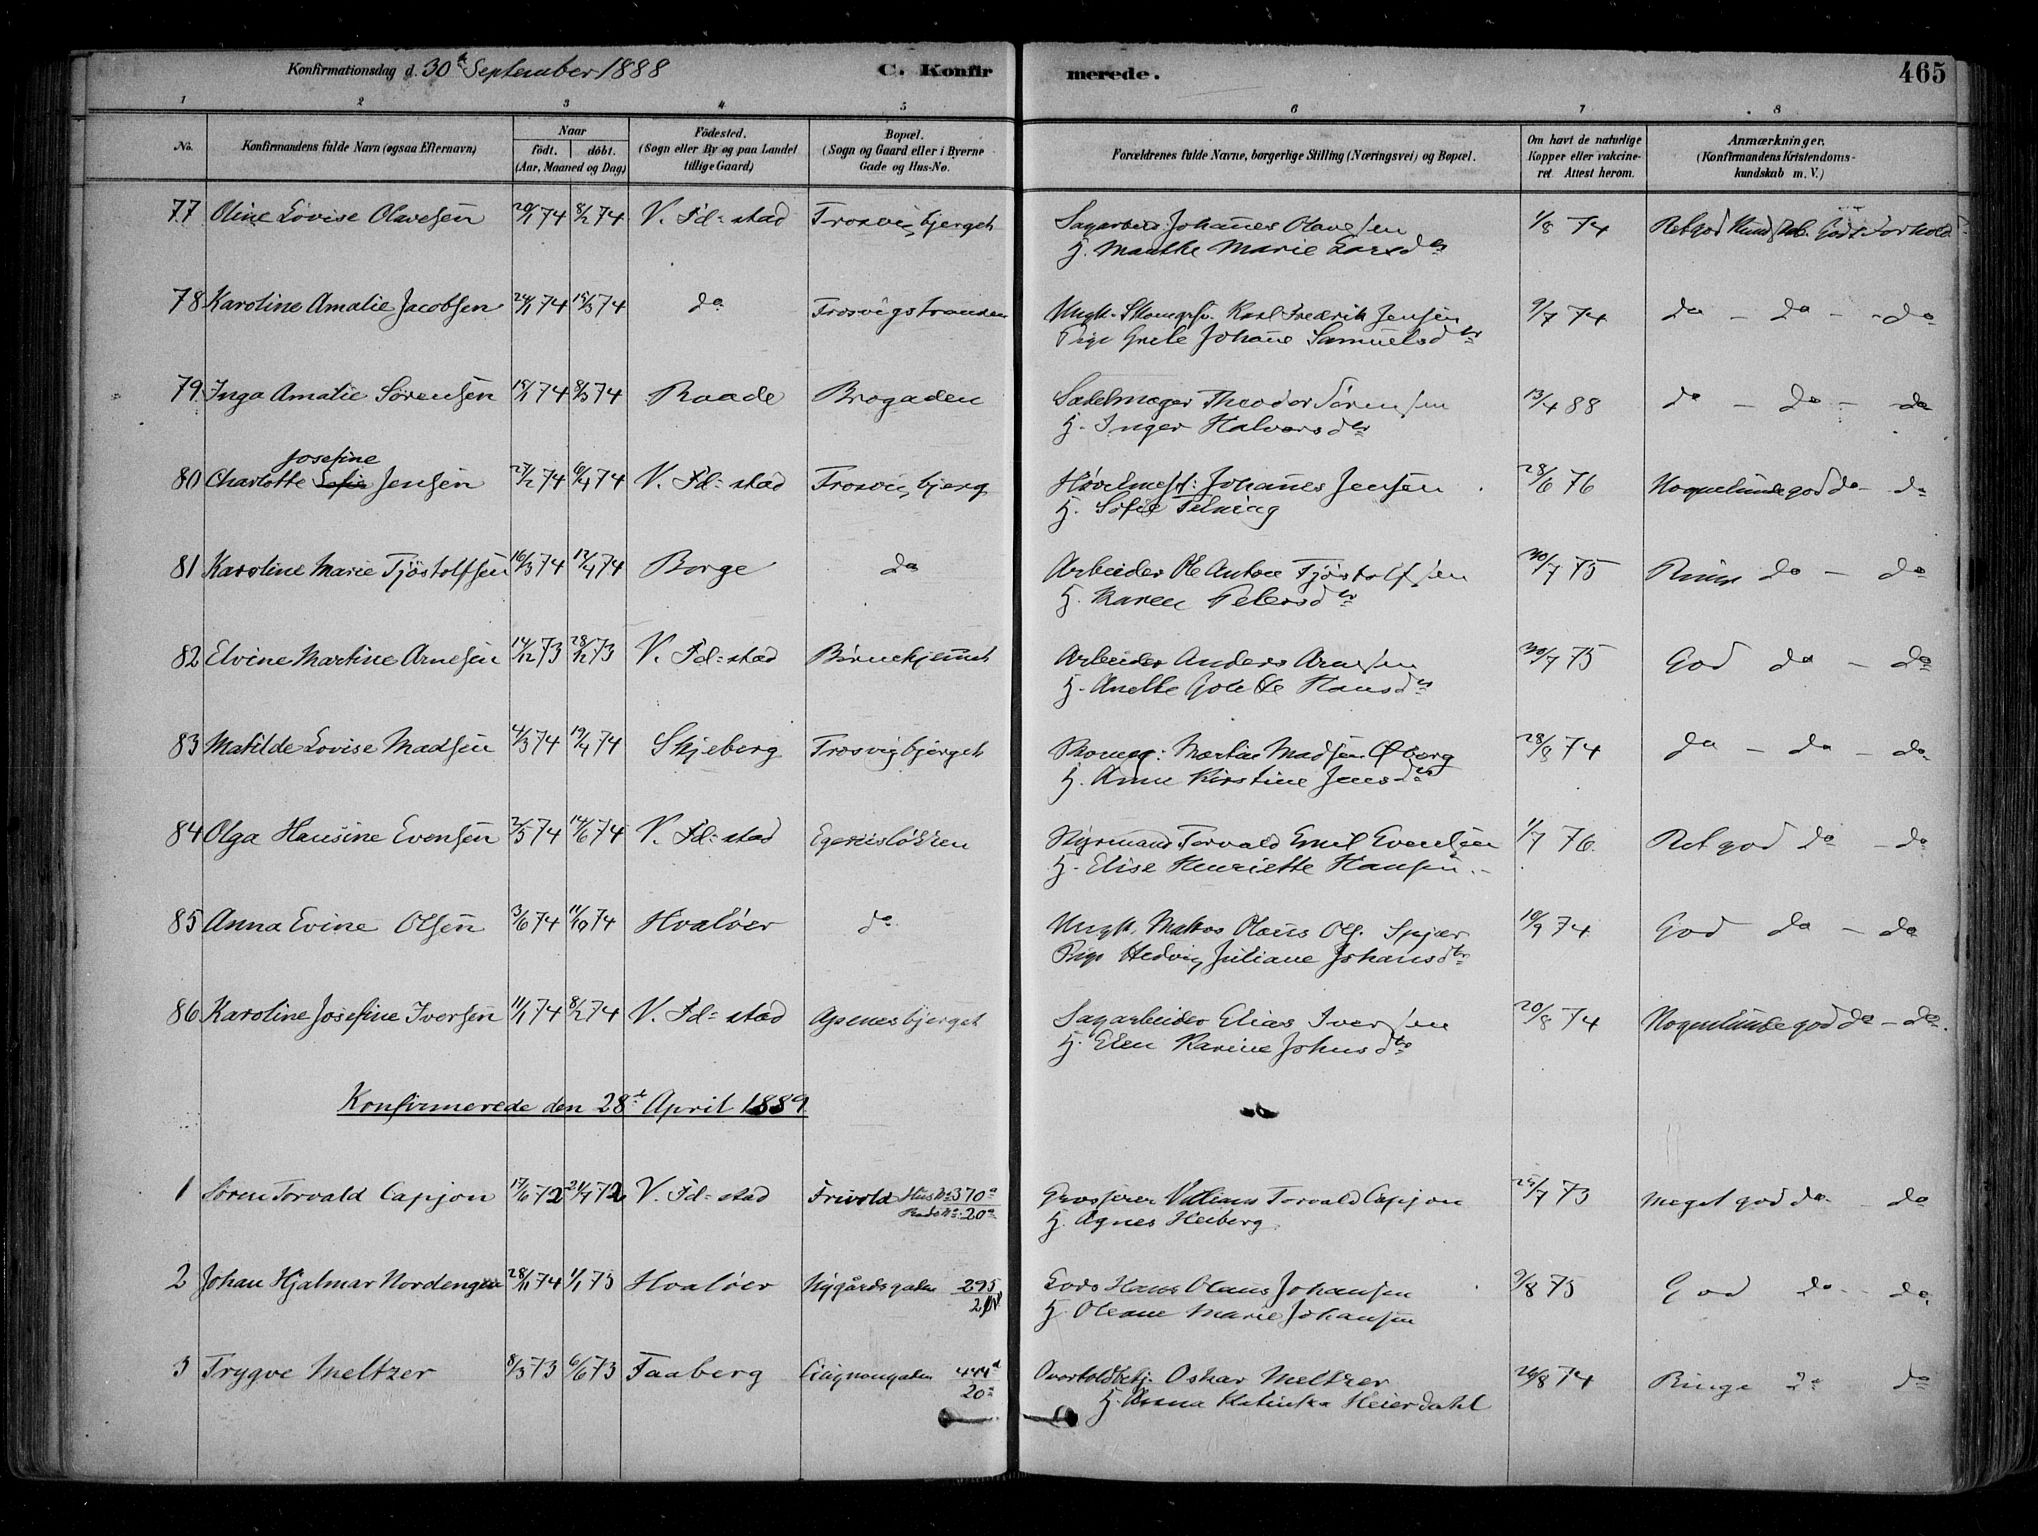 Konfirmationsdag d. 30te September 1888 C. Konfirmerede. 465
1 2 3 4 5 6 7 8
No. Konfirmandens fulde Navn (ogsaa Efternavn) Naar født. døbt. (Aar, Maaned og Dag) Fødested. (Sogn eller By og paa Landet tillige Gaard) Bopæl. (Sogn og Gaard eller i Byerne Gade og Hus-No. Forældrenes fulde Navne, borgerlige Stilling (Næringsvei) og Bopæl. Om havt de naturlige Kopper eller vakcineret. Attest herom. Anmærkninger. (Konfirmandens Kristendomskundskab m. V.)
77 Oline Lovise Olavesen 20/1 74 8/2 74 V. Fd=stad Trosvigbjerget Sagarbeid. Johannes Olavesen 1/8 74 Ret god Kundskab. Godt Forhold
H. Marthe Marie Larsdr
78 Karoline Amalie Jacobsen 15/3 74 do Trosvigstranden Ungk. Skomgsv. Karl Fredrik Jensen 9/7 74 do - do - do
Pige Grete Johane Samuelsdtr
79 Inga Amalie Sørensen 15/1 74 8/3 74 Raade Brogaden Sadelmager Theodor Sørensen 13/4 88 do - do - do
H. Inger Halvorsdr
Josefine
80 Charlotte Sofie Jensen 27/2 74 6/4 74 V. Fd=stad Trosvigbjerg Høvelmest. Johannes Jensen 28/6 76 Nogenlunde god do - do
H. Sofie
81 Karoline Marie Tjøstolfsen 16/3 74 12/4 74 Borge do Arbeider Ole Anton Tjøstolfsen 30/7 75 Ringe do - do
H. Karen Petersdr
82 Elvine Martine Arnesen 14/12 73 28/12 73 V. Fd=stad Arbeider Anders Arnesen 30/7 75 God do - do
H. Anette Hansdr
83 Matilde Lovise Madsen 4/3 74 19/4 74 Skjeberg Trosvigbjerget Skomag. Martin Madsen Øberg 28/8 74 do - do - do
H. Anne Kirstine Jensdr
84 Olga Hansine Evensen 2/5 74 14/6 74 V. Fd=stad Egeriisløkken Styrmand Torvald Emil Evensen 1/7 76. Ret god do - do
H. Elise Henriette Hansen.
85 Anna Evine Olsen 3/6 74 11/10 74 Hvaløer do Ungk. Matros Olaus Ols. Spjær 10/9 74 God do - do
Pige Hedvig Juliane Johansdtr
86 Karoline Josefine Iversen 11/1 74 8/2 74 V. Fd=stad Apenesbjerget Sagarbeider Elias Iversen 20/8 74 Nogenlunde god do - do.
H. Elen Karine Johnsdtr
Konfirmerede den 28de April 1889
1 Søren Torvald Capjon 17/6 72 21/7 72 V. Fd=stad Frivold Hus No 370a Grosserer William Torvald Capjon 25/7 73 Meget god do - do
20a H. Agnes Heiberg
2 Johan Hjalmar Nordengen 28/11 74 1/1 75 Hvaløer Nygårdsgaten 295 Lods Hans Olaus Johansen 9/8 75 God do - do.
H. Oleane Marie Johansen
3 Trygve Meltzer 8/3 73 6/6 73 Faaberg Cicignongaten 444d Overtoldbetj. Oskar Meltzer 26/8 74 Ringe do do
20a H. Anna Katinka Heierdahl